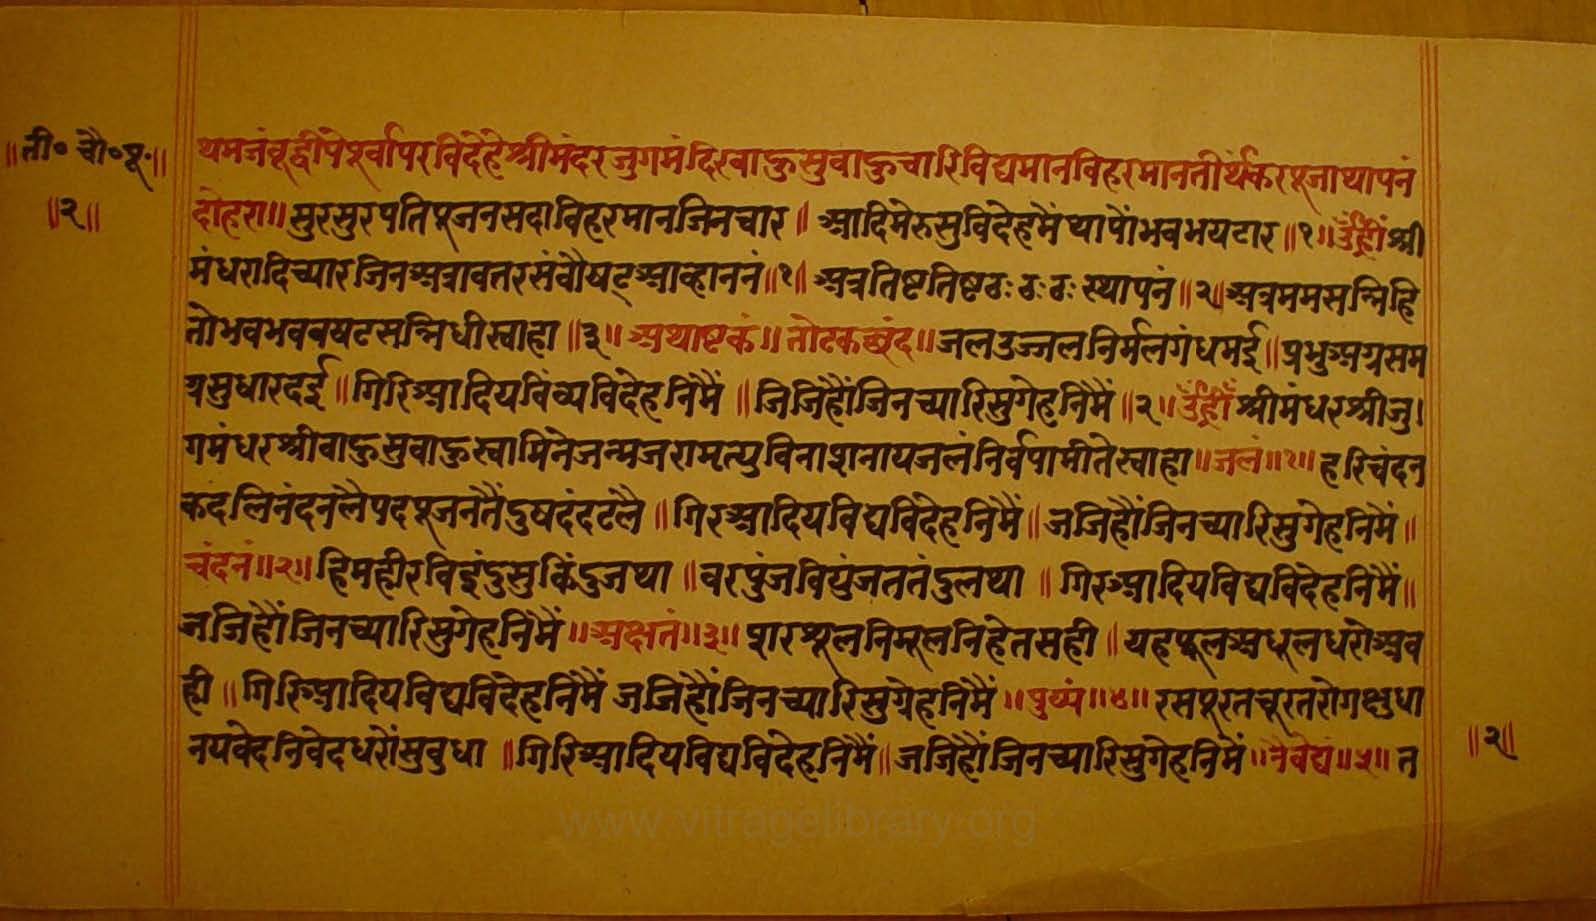 ॥ती० चौ०पू०॥
॥२॥
थमजंबूद्वीपेपूर्वापरविदेहेश्रीमंदरजुगमंदिरबाहुसुबाहुचारिविद्यमानविहरमानतीर्थंकरपूजाथापनं
दोहरा॥सुरसुरपतिपूजनसदाविहरमानजिनचार॥ आदिमेरुसुविदेहमैंथापौंभवभयटार॥१॥ॐह्रींश्री
मंधरादिच्यारजिनअत्रावतरसंवौषट्आव्हाननं॥१॥अत्रतिष्टतिष्टठःठःठःस्थापनं॥२॥अत्रममसन्निहि
तोभवभवबषटसन्निधीस्वाहा॥३॥अथाष्टकं॥तोटकछंद॥जलउज्जलनिर्मलगंधमई॥प्रभुअग्रसम
ग्रसुधारदई॥गिरिआदियविंव्यविदेहनिमैं॥जिजिहौंजिनच्यारिसुगेहनिमैं॥२॥ॐह्रींश्रीमंधरश्रीजु।
गमंधरश्रीबाहुसुबाहुस्वामिनेजन्मजरामृत्युविनाशनायजलंनिर्वपामीतेस्वाहा॥जलं॥१॥हरिचंदन
कदलिनंदनलैपदपूजनतैंदुषदंदटलै॥गिरआदियविद्यविदेहनिमैं॥जजिहौंजिनच्यारिसुगेहनिमैं॥
चंदनं॥२॥हिमहीरविइंदुसुकिंदुजथा॥वरपुंजवियुंजततंदुलथा॥गिरआदियविद्यविदेहनिमैं॥
जजिहौंजिनच्यारिसुगेहनिमैं॥अक्षतं॥३॥शरशूलनिमूलनिहेतसही॥यहफूलअधूलधरोअब
ही॥गिरिआदियविद्यविदेहनिमैं जजिहौंजिनच्यारिसुगेहनिमैं॥पुष्पं॥४॥रसपूरतचूरतरोगक्षुधा
नयवेदनिवेदधरौंसुबुधा॥गिरिआदियविद्यविदेहनिमैं॥जजिहौंजिनच्यारिसुगेहनिमैं॥नैवेद्यं॥५॥त
॥२॥
www.vitragelibrary.org